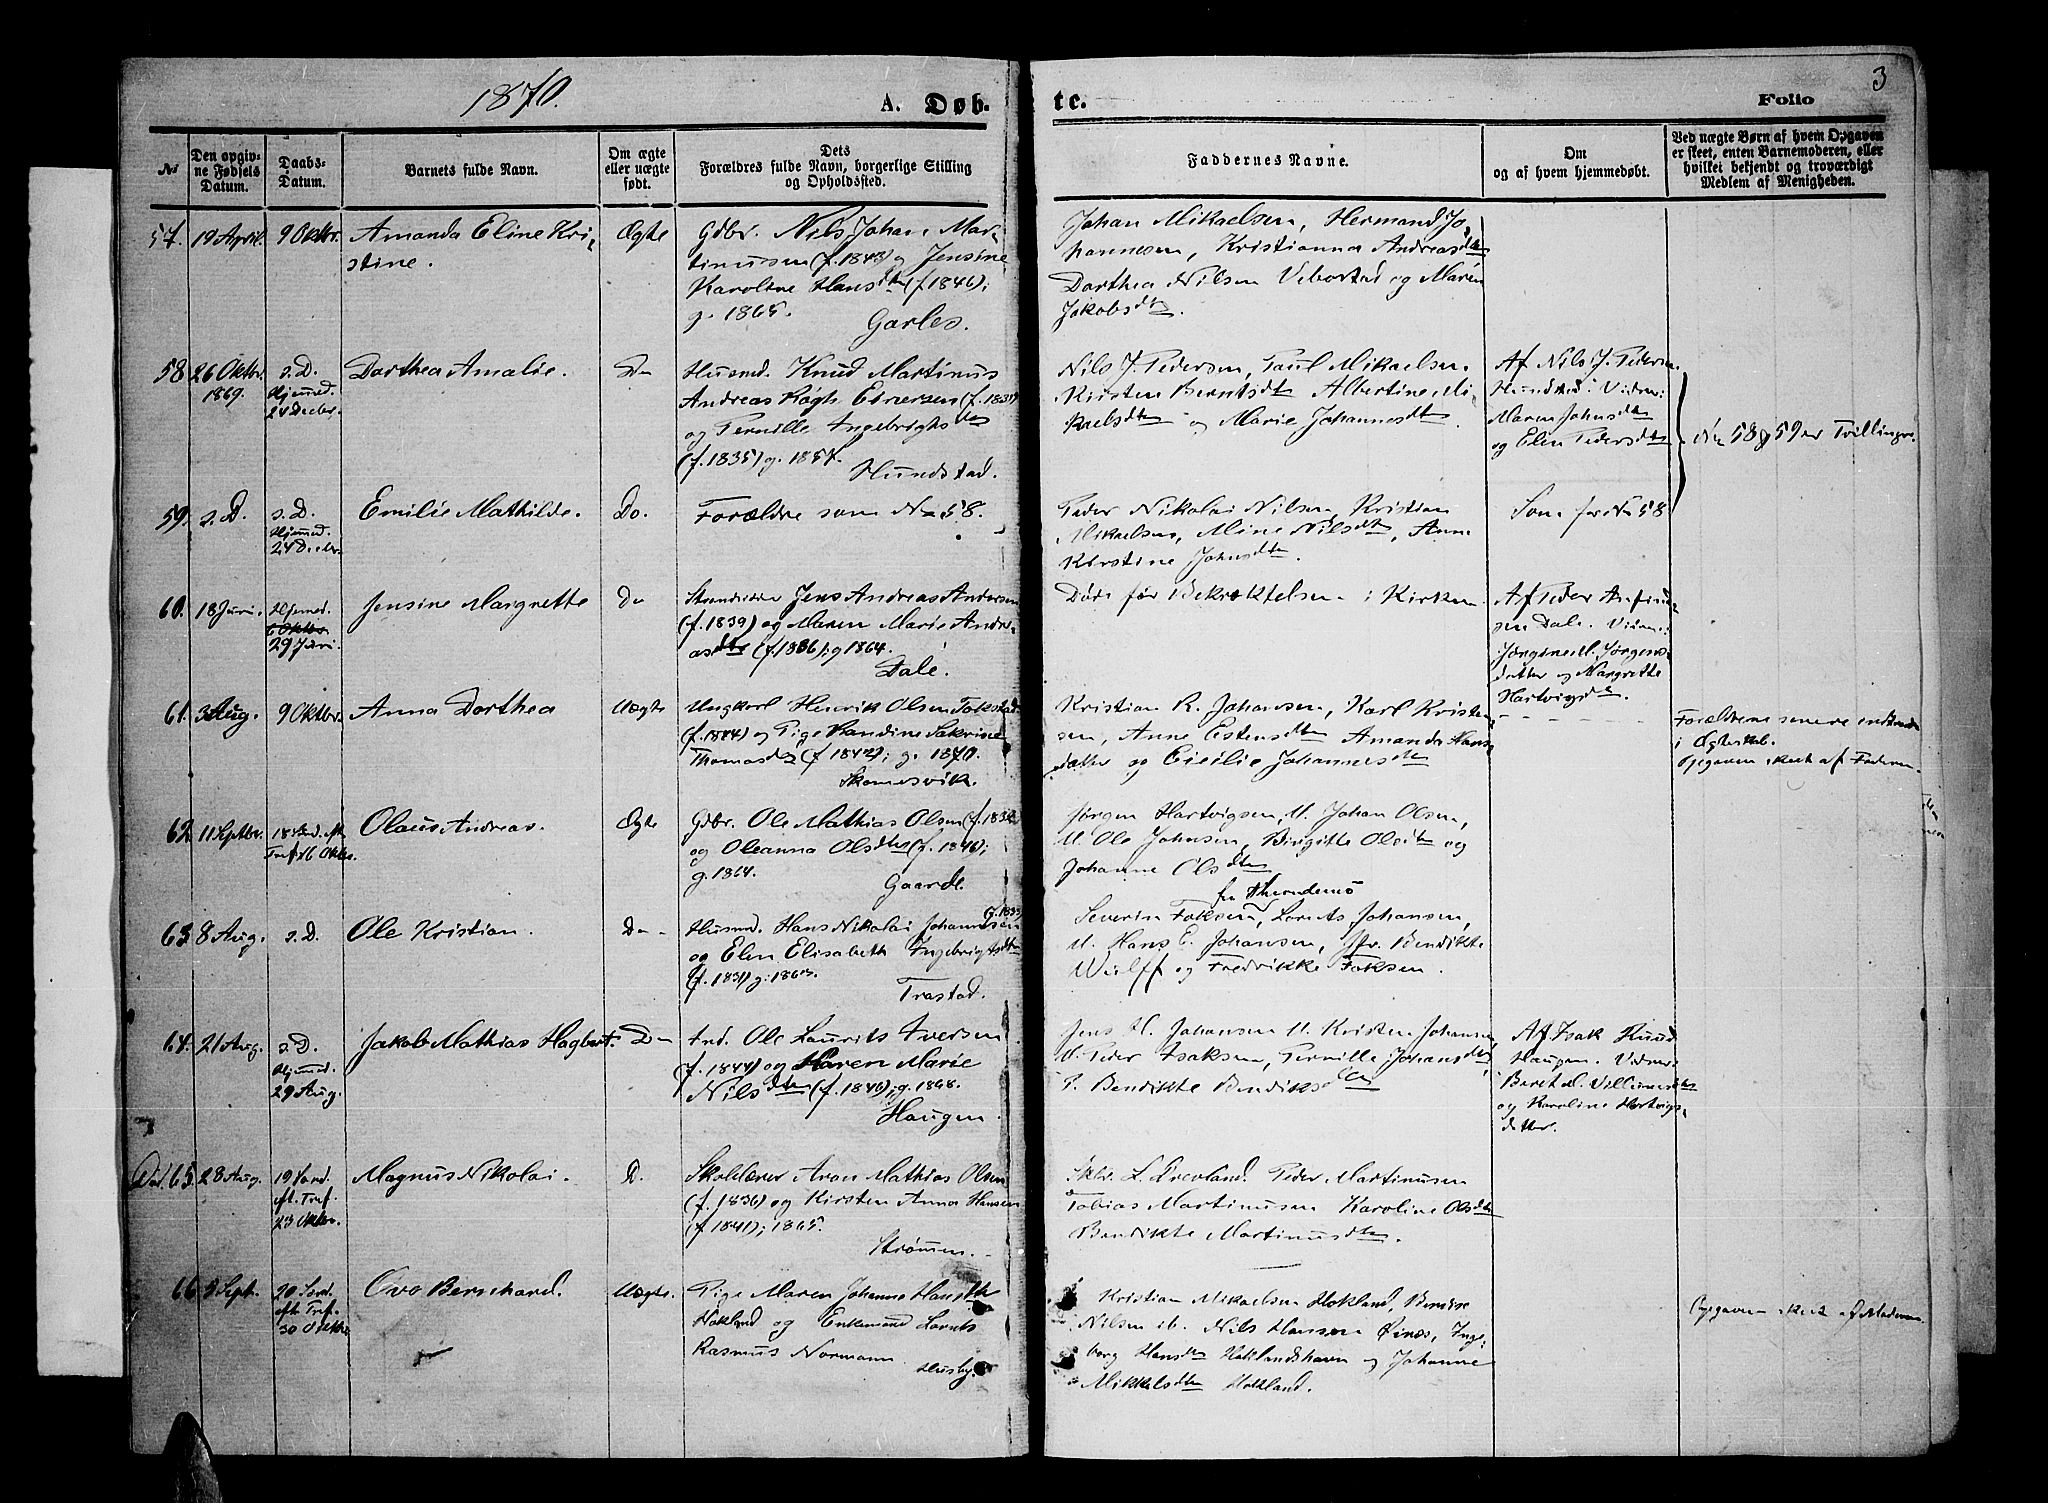 1870.
A. Døb-
te.
Folio
3
No
Den opgiv-
ne Fødsels
Datum.
Daabs-
Datum.
Barnets fulde Navn.
Om ægte
eller uægte
født.
Dets
Forældres fulde Navn, borgerlige Stilling
og Opholdssted.
Faddernes Navne.
Om
og af hvem hjemmedøbt.
Ved uægte Børn af hvem Opgaven
er skeet, enten Barnemoderen, eller
hvilket bekjendt og troværdigt
Medlem af Menigheden.
57. 19 April. 9 Oktbr. Amanda Eline Kri-
stine.
Ægte
Gdbr. Nils Johan Mar-
tinusen (f. 1843) og Jensine
Karoline Hansdtr (f. 1846);
g. 1865.
Garles.
Johan Mikaelsen, Hermand Jo-
hannesen, Kristianna Andreasdtr
Dorthea Nilsen Vebostad og Maren
Jakobsdtr.
58 26 Oktbr.
1869.
s. D.
Hjemmed.
24 Decbr.
Dorthea Amalie.
Do
Husmd. Knud Martinus
Andreas Røgh Einersen (f. 1831)
og Pernille Ingebrigtsdtr
(f. 1835) g. 1857.
Hundstad.
Nils J. Pedersen, Paul Mikaelsen
Kirsten Berntsdtr Albertine Mi-
kaelsdtr og Marie Johannesdtr.
Af Nils J. Peder
Hundstad. Vidner:
Maren Johnsdtr
og Elen Pedersdtr
No 58 og 59 er Tvillinger.
59. s. D.
s. D.
Hjemmed.
24 Decbr.
Emilie Mathilde.
Do.
Forældre som No 58.
Peder Nikolai Nilsen, Kristian
Mikaelsen, Mine Nilsdtr, Anne
Kirstine Johnsdtr.
Som for No 58
60. 18 Juni.
Hjemmed.
6 Oktbr.
29 Juni.
Jensine Margrette
Do
Strandsidder Jens Andreas Andersen
(f. 1839) og Maren Marie Andre-
asdtr (f. 1836); g 1864.
Dale.
Døde før Bekræftelsen i Kirken.
Af Peder Anfind-
sen Dale. Vidner:
Jørgine M. Jørgens-
datter og Margrette
Hartvigsdtr.
61. 3 Aug. 9 Oktbr. Anna Dorthea
Uægte
Ungkarl Henrik Olsen Fokstad
(f. 1844) og Pige Handine Sakrine
Thomasdtr (f. 1842); g. 1870.
Skomesvik.
Kristian R. Johansen, Karl Kristen-
sen, Anne Estensdtr Amanda Hans-
datter og Cicilie Johannesdtr
Forældrene senere indtraadt
i Ægteskab.
Opgaven skeet af Faderen.
62 11 Septbr.
18 Sønd. eft.
Tref. 16 Oktbr.
Olaus Andreas.
Ægte
Gdbr. Ole Mathias Olsen (f. 1832)
og Oleanna Olsdtr (f. 1840);
g. 1864.
Gaarde.
Jørgen Hartvigsen, U. Johan Olsen,
U. Ole Johnsen, Birgitte Olsdtr og
Johanne Olsdtr
63 8 Aug. s. D. Ole Kristian.
Do
Husmd. Hans Nikolai Johannesen (f. 1833)
og Elen Elisabeth Ingebrigtsdtr
(f. 1831) g. 1863.
Trastad.
fra Throndenæs
Severin Foksen, Lorents Johansen,
U. Hans E. Johansen, Jfr. Bendikte
Wulff og Fredrikke Foksen.
64. 21 Aug.
s. D.
Hjemmd.
29 Aug.
Jakob Mathias Hagbart.
Do
Ind. Ole Laurits Iversen
(f. 1844) og Maren Marie
Nilsdtr (f. 1846); g. 1868.
Haugen.
Jens H. Johansen U. Kristen Johansen
U. Peder Isaksen, Pernille Johansdtr
P. Bendikte Bendiksdtr
Af Isak Knuds
Haugen. Vidner
Beret M. Villumsdtr
og Karoline Hartvigs-
datter.
65. 28 Aug.
19 Sønd.
eft. Tref.
23 Oktbr.
Magnus Nikolai.
Do.
Skolelærer Aron Mathias Olsen
(f. 1836) og Kirsten Anna Hansen
(f. 1841); 1865.
Strømmen.
Skbr. L. Dreyland. Peder Martinusen
Tobias Martinusen Karoline Olsdtr
Bendikte Martinusdtr.
66 3 Sept.
20 Sønd.
eft. Tref.
30 Oktbr.
Ovo Bernhard.
Uægte.
Pige Maren Johanne Hansdtr
Hokland og Enkemand Lorents
Rasmus Normann
Husby.
Kristian Mikaelsen Hokland, Berdise
Nilsen ib. Nils Hansen Øines, Inge-
borg Hansdtr Hoklandshavn og Johanne
Mikkelsdtr Hokland.
Opgaven skeet af Moderen.